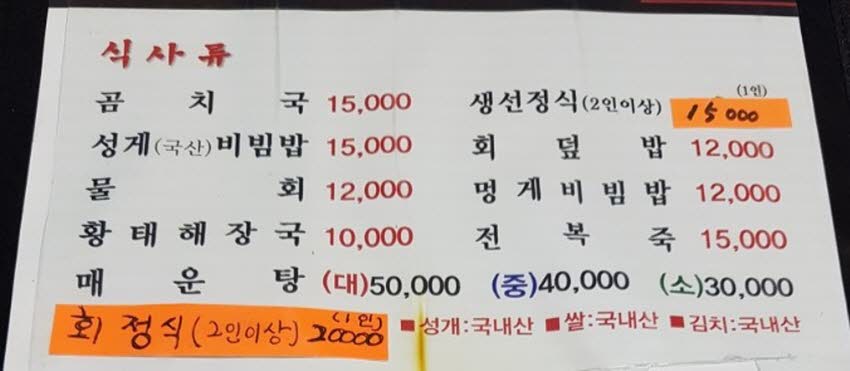 식사류
곰치국 15,000 생선정식(2인이상) (1인) 15000
성게(국산)비빔밥 15,000 회덮밥 12,000
물회 12,000 멍게비빔밥 12,000
황태해장국 10,000 전복죽 15,000
매운탕 (대)50,000 (중)40,000 (소)30,000
회정식(2인이상) (1인) 20000 ■성개:국내산 ■쌀:국내산 ■김치:국내산